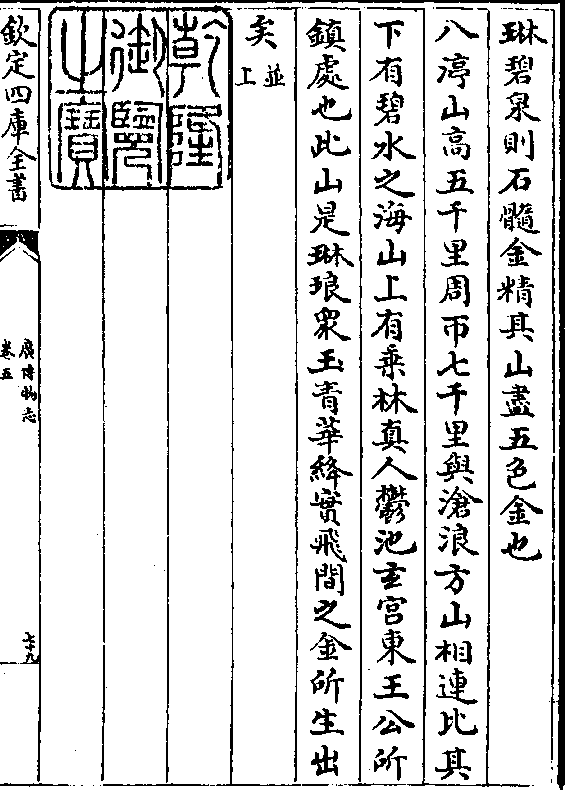 琳碧泉則石髓金精其山盡五色金也
八渟山高五千里周帀七千里與滄浪方山相連比其
下有碧水之海山上有乘林真人鬱池玄宮東王公所
鎮處也此山是琳琅衆玉青華絳實飛間之金所生出
矣並上
乾隆御覽之寶
欽定四庫全書
廣博物志
卷五
七十九